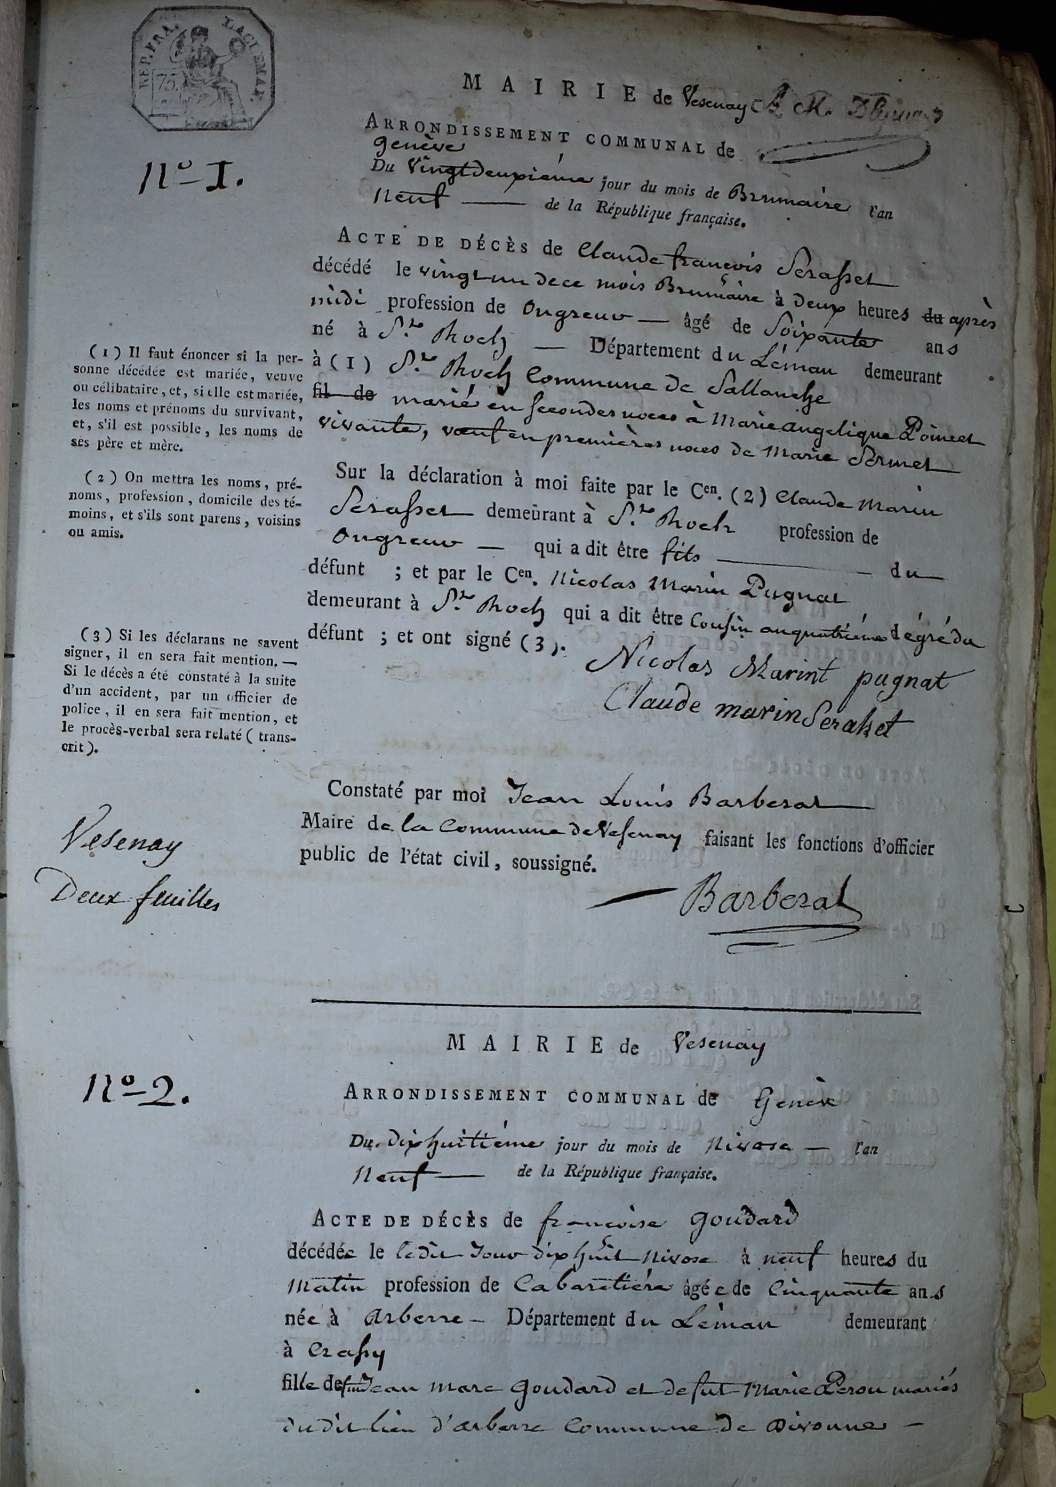 REP. FRA.
75
MAIRIE de Vesenay
ARRONDISSEMENT COMMUNAL de
genève
Nº 1.
Du Vingtdeuxiéme jour du mois de Brumaire l'an
Neuf — de la République française.
ACTE DE DÉCÈS de Claude françois Serasset
décédé le vingt un de ce mois Brumaire à Deux heures du après
midi profession de Ongreur — âgé de Soixante ans
né à St. Roch — Département du Léman demeurant
à (1) St. Roch Commune de Sallanche
fil de marié en secondes noces à Marie angelique Poincet
vivante, veuf en premières noces de Marie Sermet
(1) Il faut énoncer si la per-
sonne décédée est mariée, veuve
ou célibataire, et, si elle est mariée,
les noms et prénoms du survivant,
et, s'il est possible, les noms de
ses père et mère.
(2) On mettra les noms, pré-
noms, profession, domicile des té-
moins, et s'ils sont parens, voisins
ou amis.
Sur la déclaration à moi faite par le Cen. (2) Claude Marin
Serasset demeurant à St. Roch profession de
Ongreur — qui a dit être fils — du
défunt ; et par le Cen. Nicolas Marin Pugnat
demeurant à St. Roch qui a dit être Cousin au quatriéme dégré du
défunt ; et ont signé (3).
(3) Si les déclarans ne savent
signer, il en sera fait mention. —
Si le décès a été constaté à la suite
d'un accident, par un officier de
police, il en sera fait mention, et
le procès-verbal sera relaté (trans-
crit).
Nicolas Marint pugnat
Claude marin Serasset
Constaté par moi Jean Louis Barberat
Maire de la Commune de Vesenay faisant les fonctions d'officier
public de l'état civil, soussigné.
Barberat
Vesenay
Deux feuilles
MAIRIE de Vesenay
Nº 2.
ARRONDISSEMENT COMMUNAL de Genève
Du dix huitiéme jour du mois de Nivose — l'an
Neuf — de la République française.
ACTE DE DÉCÈS de françoise Goudard
décédée le ledit Jour dix huit Nivose à neuf heures du
Matin profession de Cabaretiére âgée de Cinquante ans
née à Arberre — Département du Léman demeurant
à Crassy
fille de feu Jean Marc Goudard et de fut Marie Perou mariés
dudit lieu d'arberre Commune de Divonne —